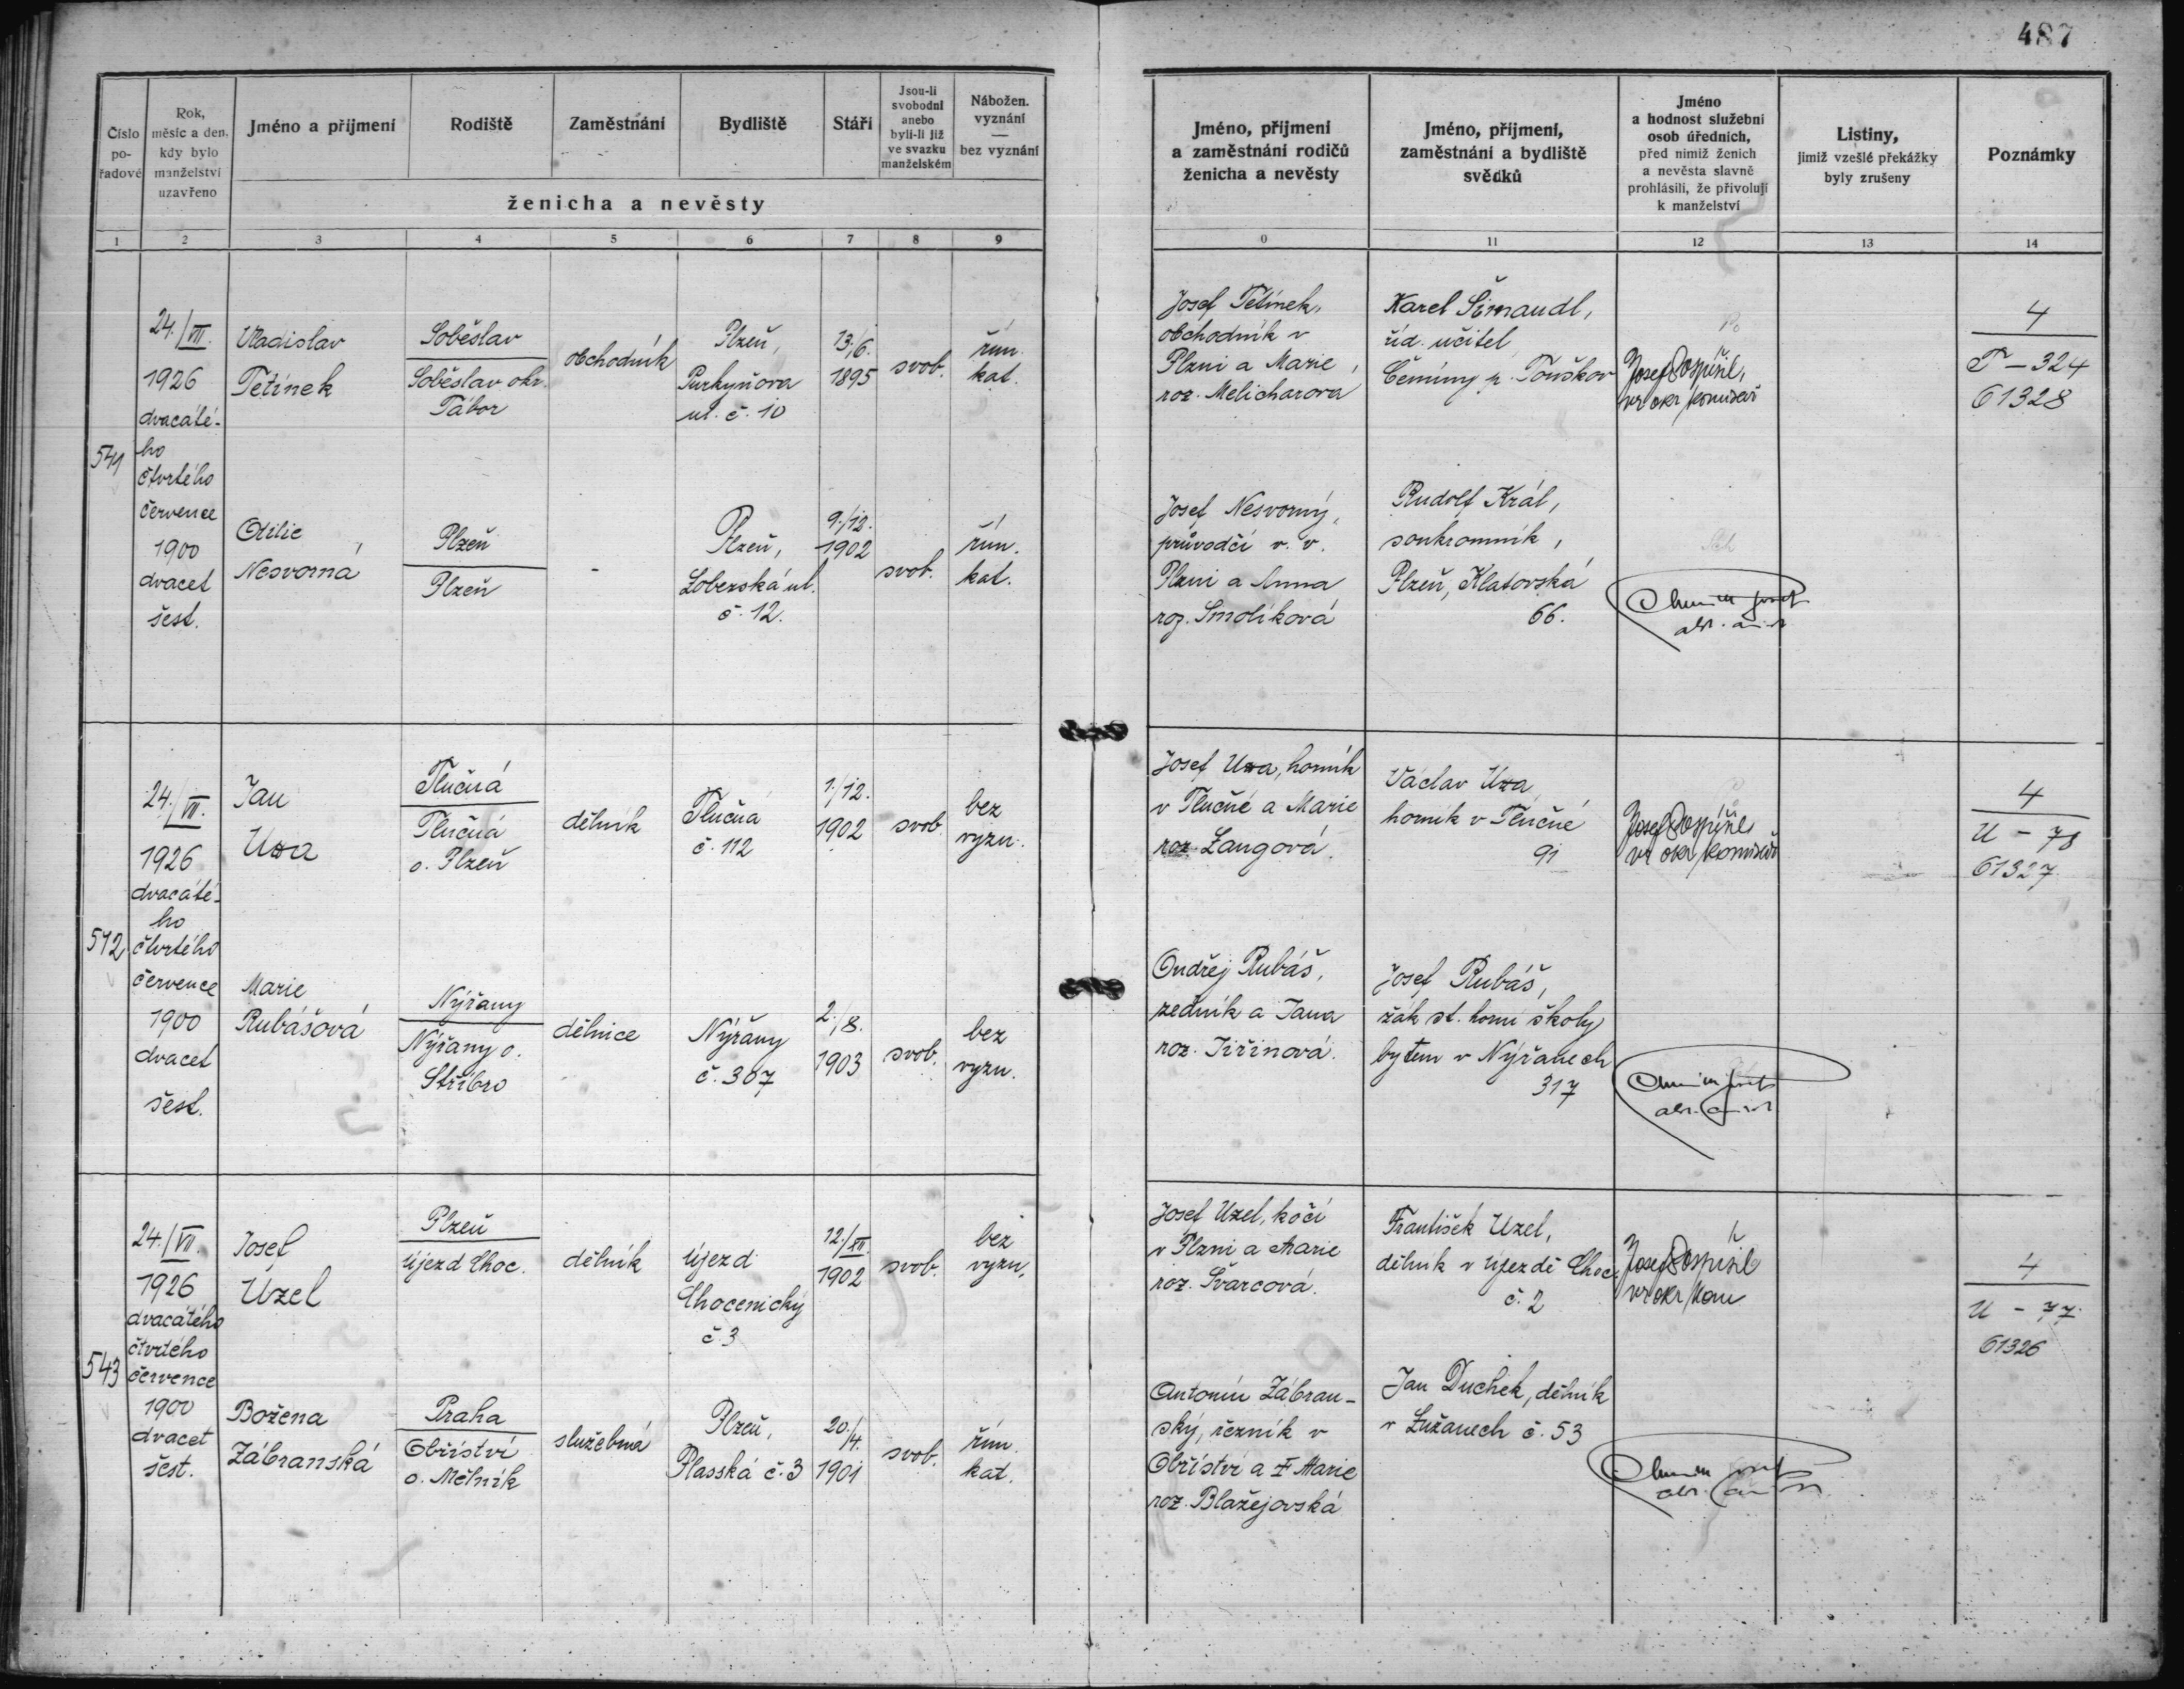 487
Číslo
po-
řadové
Rok,
měsíc a den,
kdy bylo
manželství
uzavřeno
Jméno a příjmení
Rodiště
Zaměstnání
Bydliště
Stáří
Jsou-li
svobodni
anebo
byli-li již
ve svazku
manželském
Nábožen.
vyznání
—
bez vyznání
ženicha a nevěsty
1 2 3 4 5 6 7 8 9
Jméno, příjmení
a zaměstnání rodičů
ženicha a nevěsty
Jméno, příjmení,
zaměstnání a bydliště
svědků
Jméno
a hodnost služební
osob úředních,
před nimiž ženich
a nevěsta slavně
prohlásili, že přivolují
k manželství
Listiny,
jimiž vzešlé překážky
byly zrušeny
Poznámky
0 11 12 13 14
541
24./VII.
1926
dvacáté-
ho
čtvrtého
července
1900
dvacet
šest.
Vladislav
Tetínek
Soběslav
Soběslav okr.
Tábor
obchodník
Plzeň,
Purkyňova
ul. č. 10
13./6.
1895
svob.
řím.
kat.
Josef Tetínek,
obchodník v
Plzni a Marie
roz. Melicharova
Karel Šimandl,
říd. učitel
Čeminy p. Touškov
Josef Pospíšil,
vr. okr. komisař
4
T – 324
61328
Otilie
Nesvorná
Plzeň
Plzeň
-
Plzeň,
Loberská ul.
č. 12.
9./12.
1902
svob.
řím.
kat.
Josef Nesvorný,
průvodčí v. v.
Plzni a Anna
roz. Smolíková
Rudolf Král,
soukromník,
Plzeň, Klatovská
66.
542
24./VII.
1926
dvacáté-
ho
čtvrtého
července
1900
dvacet
šest.
Jan
Uza
Tlučná
Tlučná
o. Plzeň
dělník
Tlučná
č. 112
1./12.
1902
svob.
bez
vyzn.
Josef Uza, horník
v Tlučné a Marie
roz. Langová.
Václav Uza
horník v Tlučné
91
Josef Pospíšil
vr. okr. komisař
4
U – 78
61327
Marie
Rubášová
Nýřany
Nýřany o.
Stříbro
dělnice
Nýřany
č. 307
2./8.
1903
svob.
bez
vyzn.
Ondřej Rubáš,
zedník a Jana
roz. Jiřinová.
Josef Rubáš,
žák st. horní školy
bytem v Nýřanech
317
543
24./VII.
1926
dvacátého
čtvrtého
července
1900
dvacet
šest.
Josef
Uzel
Plzeň
Újezd Choc.
dělník
Újezd
Chocenický
č. 3
12./XII.
1902
svob.
bez
vyzn.
Josef Uzel, kočí
v Plzni a Marie
roz. Švarcová.
František Uzel,
dělník v Újezdě Choc.
č. 2
Josef Pospíšil
vr. okr. kom
4
U – 77
61326
Božena
Zábranská
Praha
Obříství
o. Mělník
služebná
Plzeň,
Plasská č. 3
20./4.
1901
svob.
řím.
kat.
Antonín Zábran-
ský, řezník v
Obříství a † Marie
roz. Blažejovská
Jan Duchek, dělník
v Lužanech č. 53